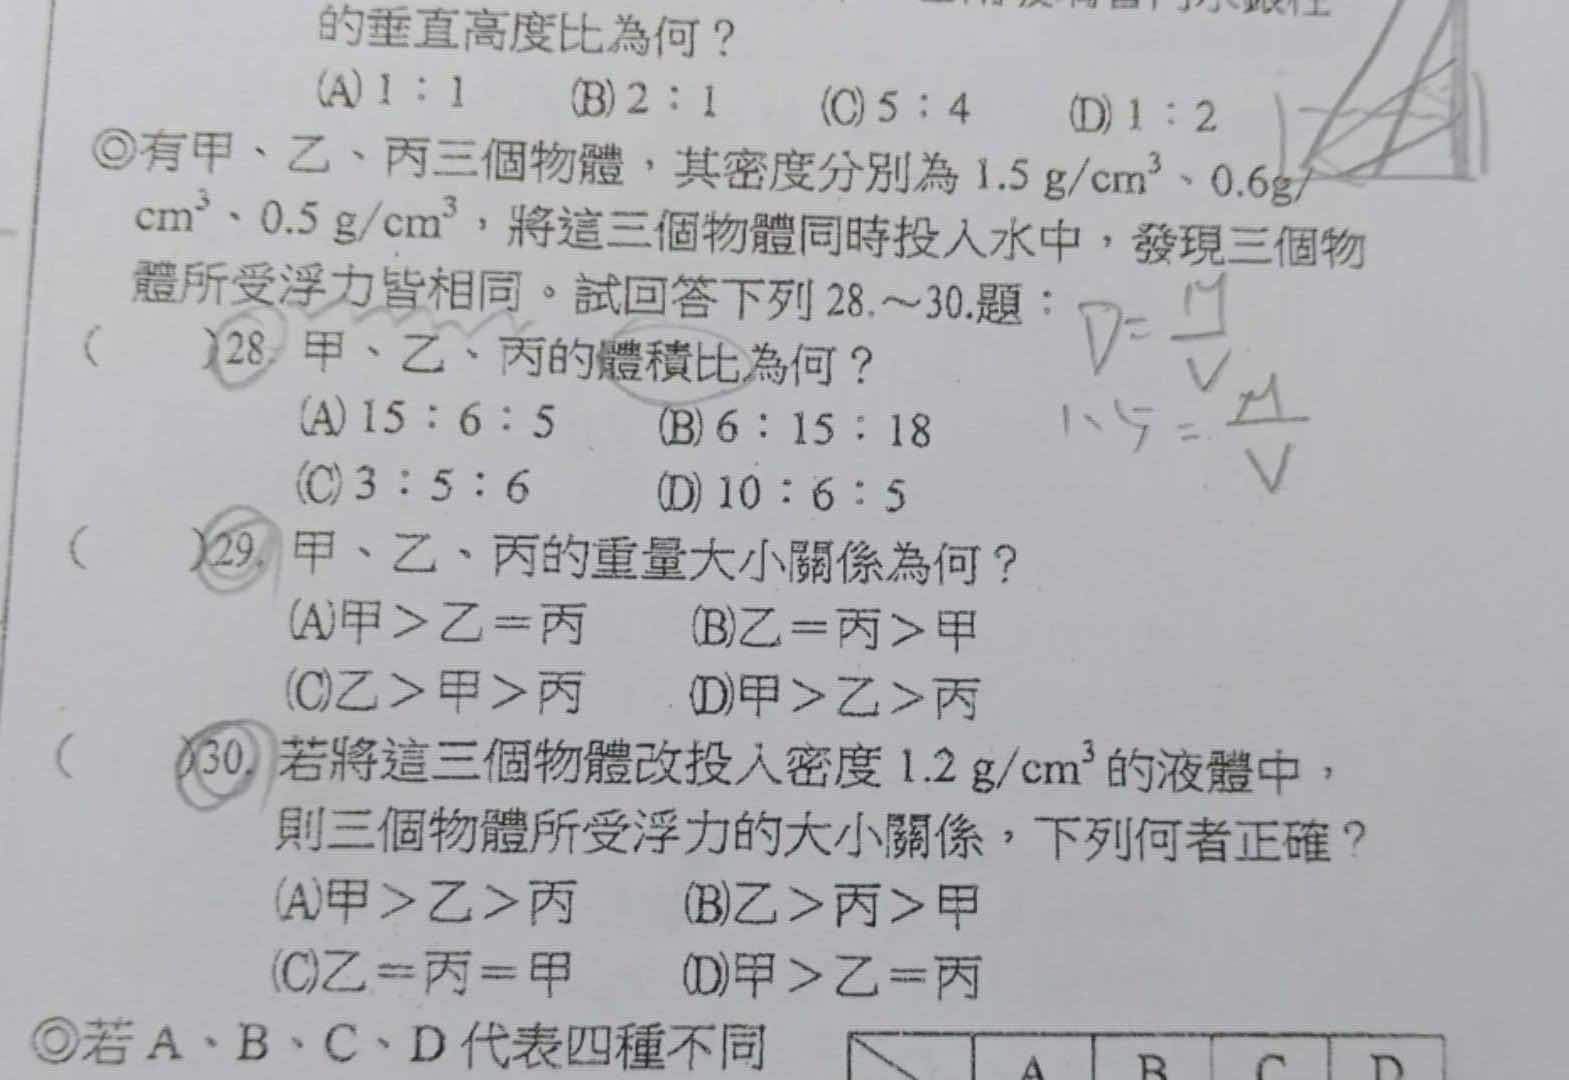 的垂直高度比為何？
(A) 1：1 (B) 2：1 (C) 5：4 (D) 1：2
◎有甲、乙、丙三個物體，其密度分別為 1.5 g/cm³、0.6g/
cm³、0.5 g/cm³，將這三個物體同時投入水中，發現三個物
體所受浮力皆相同。試回答下列 28.～30.題：
( )28. 甲、乙、丙的體積比為何？
(A) 15：6：5 (B) 6：15：18
(C) 3：5：6 (D) 10：6：5
D=M/V
1.5=M/V
( )29. 甲、乙、丙的重量大小關係為何？
(A)甲＞乙＝丙 (B)乙＝丙＞甲
(C)乙＞甲＞丙 (D)甲＞乙＞丙
( )30. 若將這三個物體改投入密度 1.2 g/cm³ 的液體中，
則三個物體所受浮力的大小關係，下列何者正確？
(A)甲＞乙＞丙 (B)乙＞丙＞甲
(C)乙＝丙＝甲 (D)甲＞乙＝丙
◎若 A、B、C、D 代表四種不同
A B C D